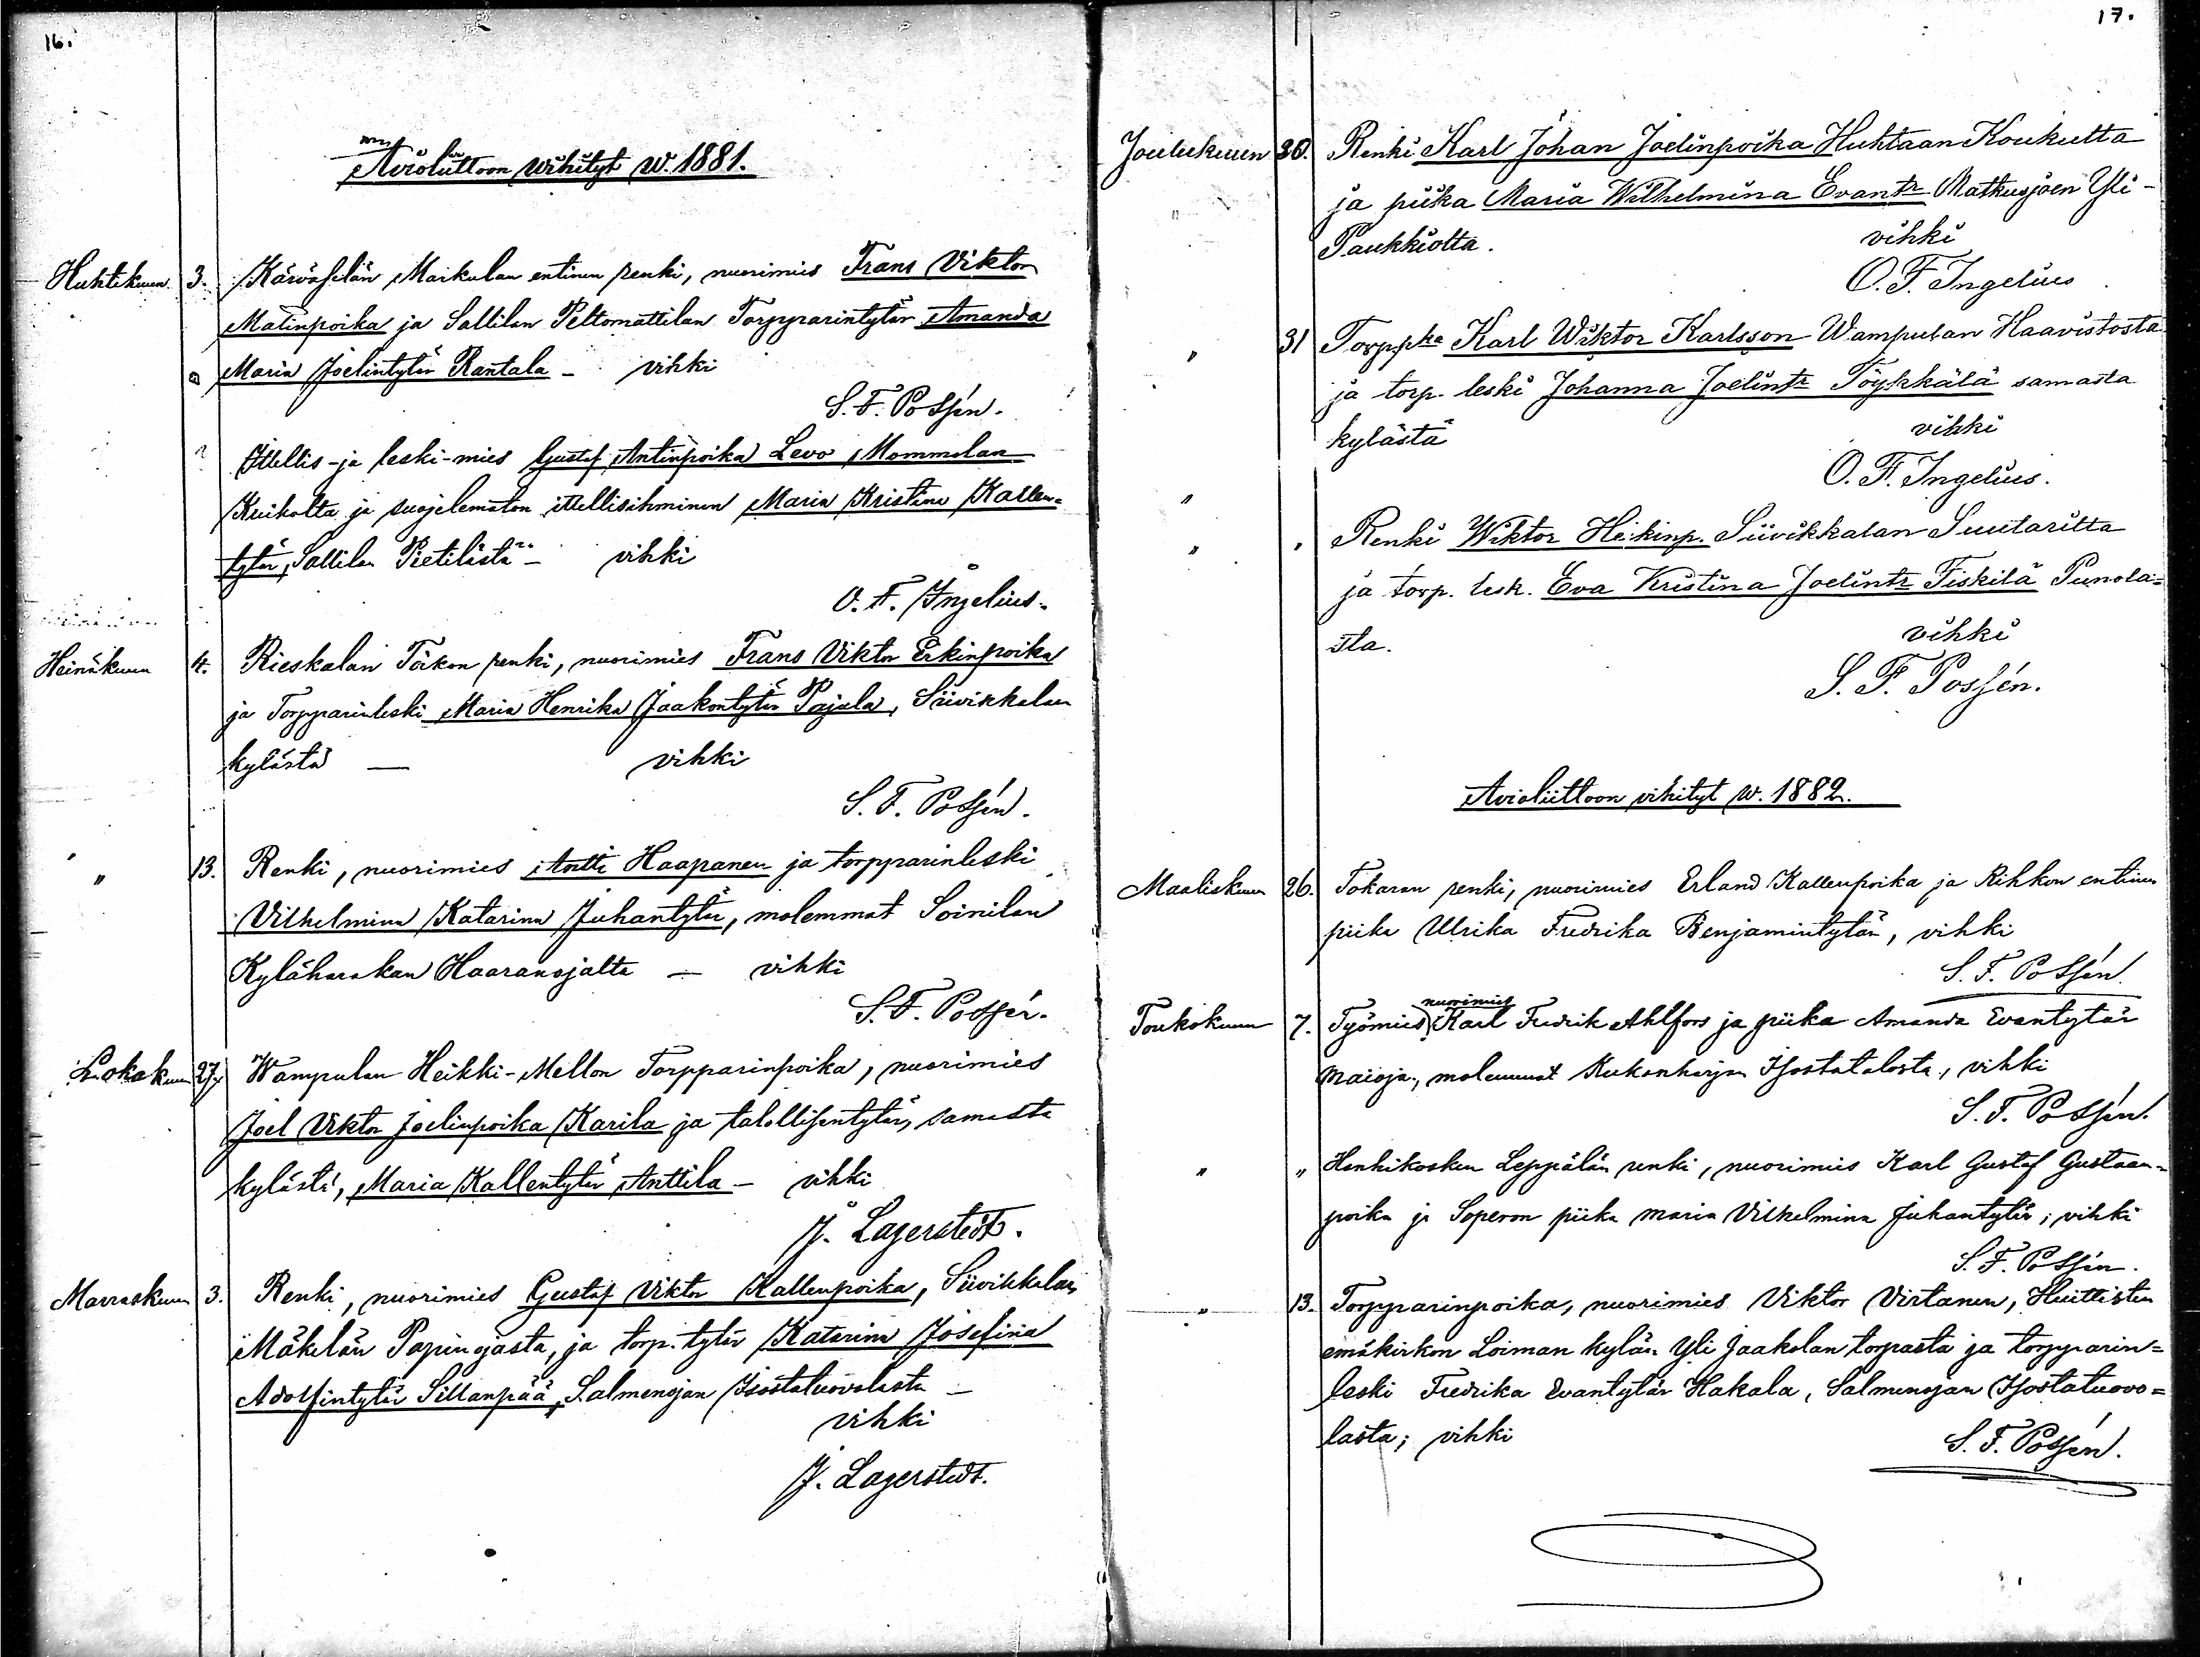 16.
Avioliittoon wihityt w. 1881.
Huhtikuun 3. Karwaselän Markulan entinen renki, nuorimies Frans Viktor
Matinpoika ja Sallilan Peltomattilan Torpparintytär Amanda
Maria Joelintytär Rantala – vihki
S. F. Possén.
Itellis-ja leski-mies Gustaf Antinpoika Levo Mommolan
Kreikolta ja suojelematon itellisihminen Maria Kristina Kallen=
tytär, Sallilan Pietilästä – vihki
O. F. Ingelius.
Heinäkuun 4. Rieskalan Töikon renki, nuorimies Frans Viktor Erkinpoika
ja Torpparinleski Maria Henrika Jaakontytär Pajala, Siivikkalan
kylästä — vihki
S. F. Possén.
" 13. Renki, nuorimies Antti Haapanen ja torpparinleski
Vilhelmina Katarina Juhantytär, molemmat Soinilan
Kyläharakan Haaranojalta — vihki
S. F. Possén.
Lokakuun 27. Wampulan Heikki-Mellon Torpparinpoika, nuorimies
Joel Viktor Joelinpoika Karila ja talollisentytär, samasta
kylästä, Maria Kallentytär Anttila – vihki
J. Lagerstedt.
Marraskuun 3. Renki, nuorimies Gustaf Viktor Kallenpoika, Siivikkalan
Mäkelän Papinojasta, ja torp. tytär Katarina Josefina
Adolfintytär Sillanpää, Salmenojan Isostaluovolasta –
vihki
J. Lagerstedt.
17.
Joulukuun 30. Renki Karl Johan Joelinpoika Huhtaan Koukulta
" ja piika Maria Wilhelmina Evantr Matkusjoen Yli-
Paukkiolta. vihki
O. F. Ingelius
" 31 Torppka Karl Wiktor Karlsson Wampulan Haavistosta
ja torp. leski Johanna Joelintr Töykkälä samasta
kylästä vihki
" O. F. Ingelius.
" " Renki Wiktor Heikinp. Siivikkalan Suutarilta
ja torp. lesk. Eva Kristina Joelintr Fiskilä Punola=
sta. vihki
S. F. Possén.
Avioliittoon vihityt w. 1882.
Maaliskuun 26. Tokaran renki, nuorimies Erland Kallenpoika ja Rihkon entinen
piika Ulrika Fredrika Benjamintytär, vihki
S. F. Possén.
nuorimies
Toukokuun 7. Työmies Karl Fredrik Ahlfors ja piika Amanda Evantytär
Maioja, molemmat Kukonharjan Isostatalosta, vihki
S. F. Possén.
" " Henkikosken Leppälän renki, nuorimies Karl Gustaf Gustaan-
poika ja Soperon piika Maria Vilhelmina Juhantytär; vihki
S. F. Possén.
" 13. Torpparinpoika, nuorimies Viktor Virtanen, Huittisten
emäkirkon Loiman kylän Yli Jaakolan torpasta ja torpparin=
leski Fredrika Evantytär Hakala, Salmenojan Isostaluovo=
lasta; vihki
S. F. Possén.